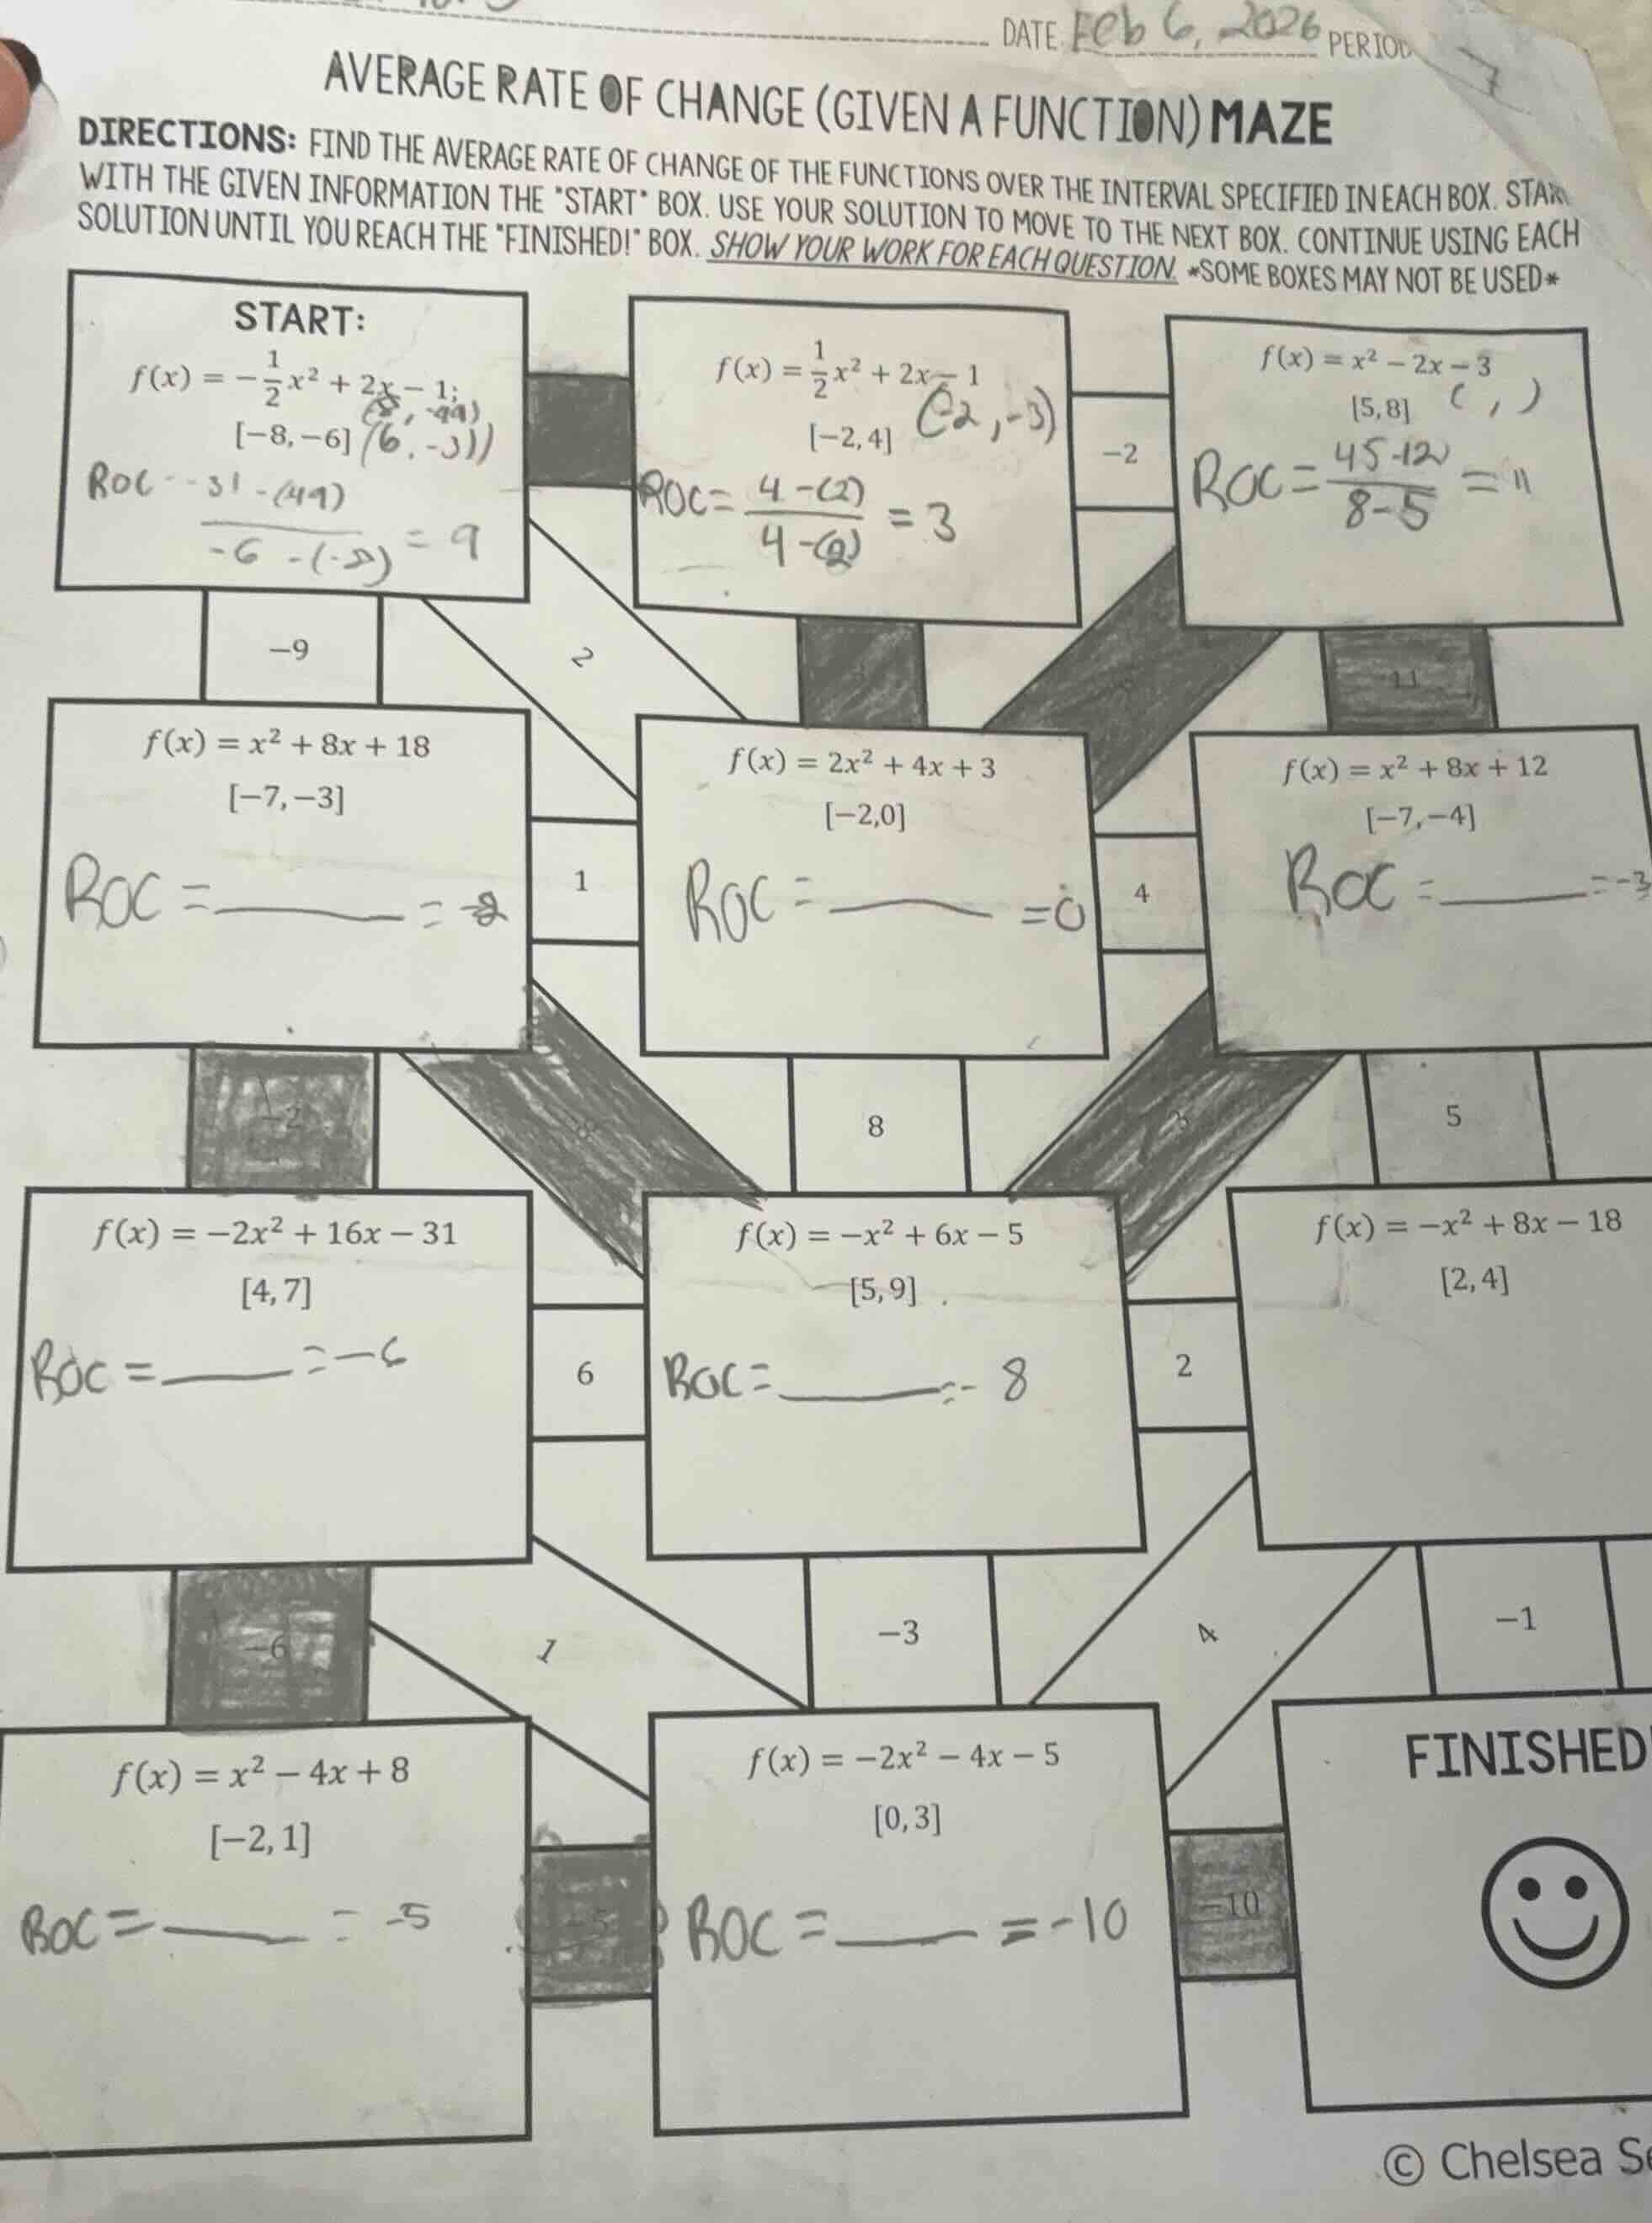 DATE Feb 6, 2026 PERIOD 7
AVERAGE RATE OF CHANGE (GIVEN A FUNCTION) MAZE
DIRECTIONS: FIND THE AVERAGE RATE OF CHANGE OF THE FUNCTIONS OVER THE INTERVAL SPECIFIED IN EACH BOX. STAR
WITH THE GIVEN INFORMATION THE "START" BOX. USE YOUR SOLUTION TO MOVE TO THE NEXT BOX. CONTINUE USING EACH
SOLUTION UNTIL YOU REACH THE "FINISHED!" BOX. SHOW YOUR WORK FOR EACH QUESTION. *SOME BOXES MAY NOT BE USED*
START:
f(x) = −1/2x² + 2x − 1;
(8, -49)
[−8,−6] (6, -31)
ROC - -31 -(49) / -6 -(-8) = 9
f(x) = 1/2x² + 2x − 1
[−2,4] (-2,-3)
ROC = 4-(2) / 4-(2) = 3
−2
f(x) = x² − 2x − 3
[5,8] ( , )
ROC = 45-12 / 8-5 = 11
−9
2
11
f(x) = x² + 8x + 18
[−7,−3]
ROC = ____ = -2
1
f(x) = 2x² + 4x + 3
[−2,0]
ROC = ____ = 0
4
f(x) = x² + 8x + 12
[−7,−4]
ROC = ____ = -3
−2
8
−3
5
f(x) = −2x² + 16x − 31
[4,7]
ROC = ____ = -6
6
f(x) = −x² + 6x − 5
[5,9]
ROC = ____ = - 8
2
f(x) = −x² + 8x − 18
[2,4]
−6
1
−3
4
−1
f(x) = x² − 4x + 8
[−2,1]
ROC = ____ = -5
−5
f(x) = −2x² − 4x − 5
[0,3]
ROC = ____ = -10
−10
FINISHED
© Chelsea Se